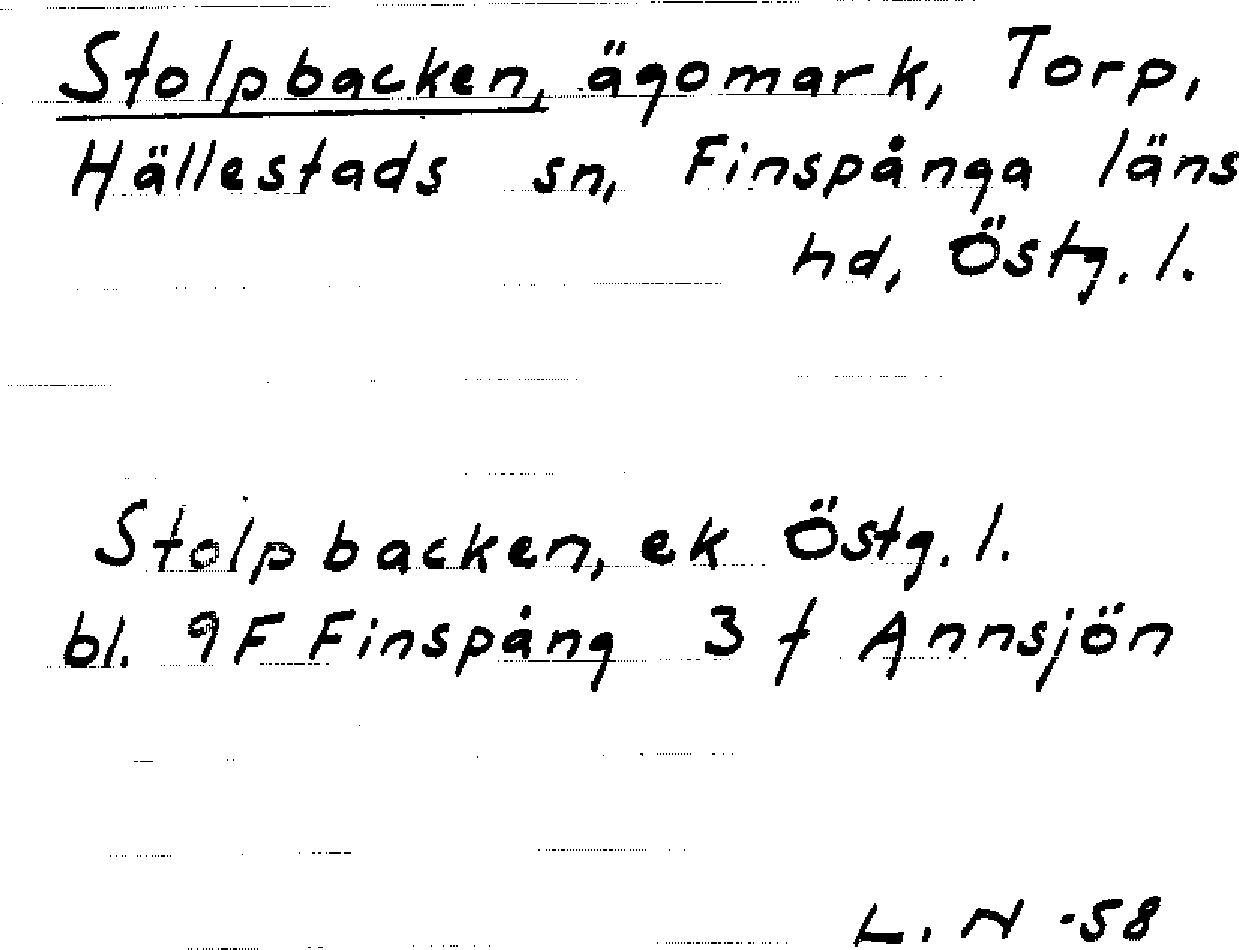 Stolpbacken, ägomark, Torp,
Hällestads sn, Finspånga läns
hd, Östg. l.
Stolpbacken, ek Östg. l.
bl. 9F Finspång 3 f Annsjön
L. N -58